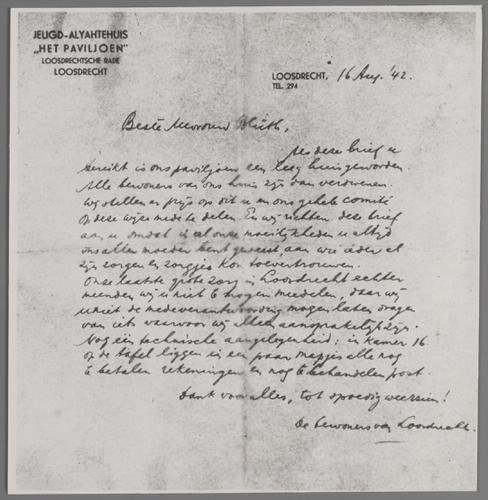 JEUGD-ALYAHTEHUIS
„HET PAVILJOEN"
LOOSDRECHTSCHE RADE
LOOSDRECHT
LOOSDRECHT, 16 Aug. '42.
TEL. 294
Beste Mevrouw Blüth,
Als deze brief u
bereikt is ons paviljoen een leeg huis geworden.
Alle bewoners van ons huis zijn dan verdwenen.
Wij stellen er prijs op dit u en ons gehele comité
op deze wijze mede te delen. En wij richten deze brief
aan u omdat u in al onze moeilijkheden u altijd
ons aller moeder bent geweest, aan wie ieder al
zijn zorgen en zorgjes kon toevertrouwen.
Onze laatste grote zorg in Loosdrecht echter
meenden wij u niet te mogen meedelen, daar wij
u niet de medeverantwoording mogen laten dragen
van iets waarvoor wij alleen aansprakelijk zijn.
Nog één technische aangelegenheid: in kamer 16
op de tafel liggen in een paar mapjes alle nog
te betalen rekeningen en nog te behandelen post.
Dank voor alles, tot spoedig weerzien!
De bewoners van Loosdrecht.